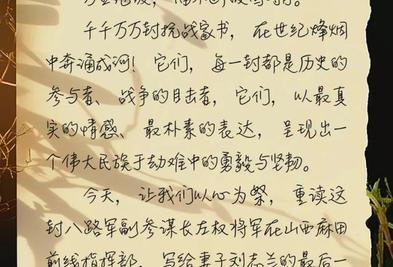 千千万万封抗战家书，在世纪烽烟
中奔涌成河！它们，每一封都是历史的
参与者、战争的目击者，它们，以最真
实的情感、最朴素的表达，呈现出一
个伟大民族于劫难中的勇毅与坚韧。
今天，让我们以心为祭，重读这
封八路军副参谋长左权将军在山西麻田
前线指挥部，写给妻子刘志兰的最后一